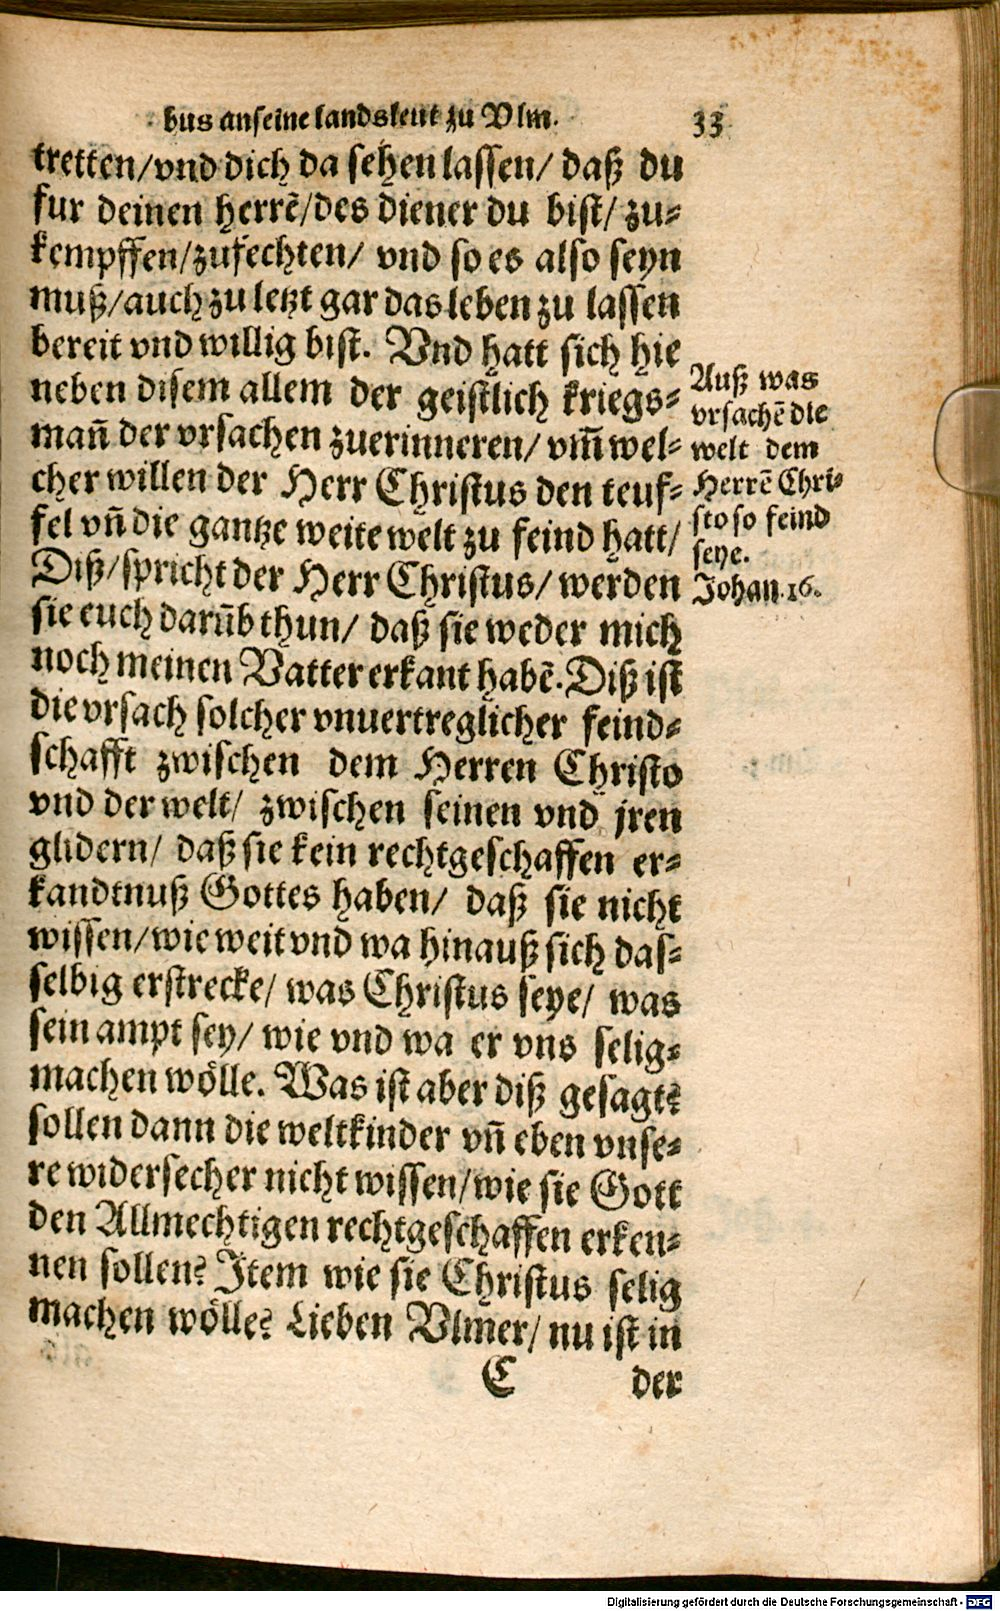 bus an seine landsleut zu Vlm. 33
tretten/vnd dich da sehen lassen/ daß du
fur deinen herrẽ/des diener du bist/ zu⸗
kempffen/zufechten/ vnd so es also seyn
muß/auch zu letzt gar das leben zu lassen
bereit vnd willig bist. Vnd hatt sich hie
neben disem allem der geistlich kriegs⸗
mañ der vrsachen zuerinneren/ vm̃ wel⸗
cher willen der Herr Christus den teuf⸗
fel vñ die gantze weite welt zu feind hatt/
Diß/spricht der Herr Christus/ werden
sie euch darũb thun/ daß sie weder mich
noch meinen Vatter erkant habẽ. Diß ist
die vrsach solcher vnuertreglicher feind⸗
schafft zwischen dem Herren Christo
vnd der welt/ zwischen seinen vnd jren
glidern/ daß sie kein rechtgeschaffen er⸗
kandtnuß Gottes haben/ daß sie nicht
wissen/wie weit vnd wa hinauß sich das⸗
selbig erstrecke/ was Christus seye/ was
sein ampt sey/ wie vnd wa er vns selig⸗
machen wölle. Was ist aber diß gesagt?
sollen dann die weltkinder vñ eben vnse⸗
re widersecher nicht wissen/wie sie Gott
den Allmechtigen rechtgeschaffen erken⸗
nen sollen? Item wie sie Christus selig
machen wölle? Lieben Vlmer/ nu ist in
C der
Auß was
vrsachẽ die
welt dem
Herrẽ Chri⸗
sto so feind
seye.
Johan.16.
Digitalisierung gefördert durch die Deutsche Forschungsgemeinschaft - DFG